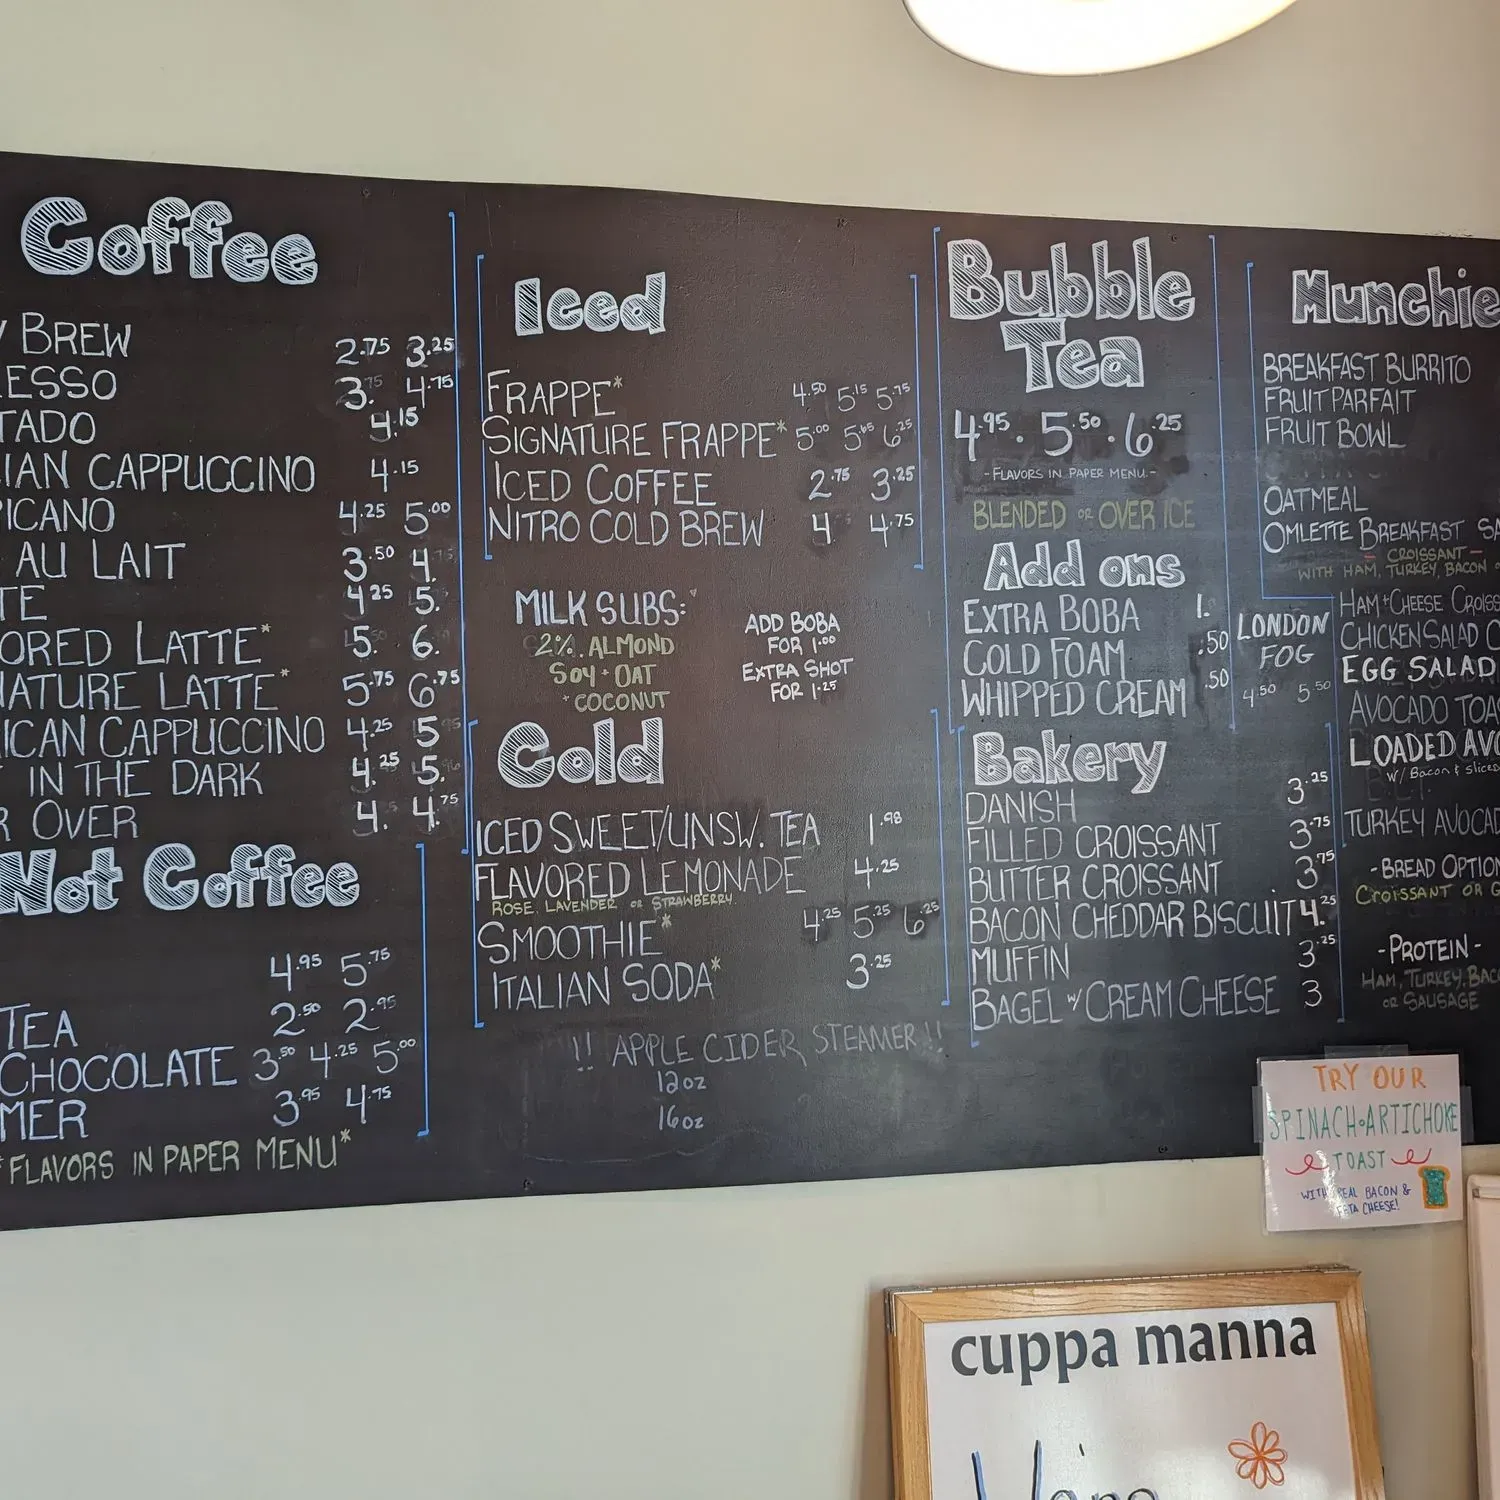 Coffee
BREW 2.75 3.25
ESSO 3. 4.75
TADO 4.15
IAN CAPPUCCINO 4.15
ICANO 4.25 5.00
AU LAIT 3.50 4.
TE 4.25 5.
ORED LATTE* 5. 6.
NATURE LATTE* 5.75 6.75
ICAN CAPPUCCINO 4.25 5
IN THE DARK 4.25 5.
R OVER 4. 4.75
Not Coffee
4.95 5.75
TEA 2.50 2.95
CHOCOLATE 3.50 4.25 5.00
MER 3.95 4.75
*FLAVORS IN PAPER MENU*
Iced
FRAPPE* 4.50 5.15 5.75
SIGNATURE FRAPPE* 5.00 5.65 6.25
ICED COFFEE 2.75 3.25
NITRO COLD BREW 4 4.75
MILK SUBS:
2%. ALMOND
SOY + OAT
+ COCONUT
ADD BOBA
FOR 1.00
EXTRA SHOT
FOR 1.25
Cold
ICED SWEET/UNSW. TEA 1.98
FLAVORED LEMONADE 4.25
ROSE, LAVENDER OR STRAWBERRY
SMOOTHIE* 4.25 5.25 6.25
ITALIAN SODA* 3.25
!! APPLE CIDER STEAMER !!
12oz
16oz
Bubble
Tea
4.95 . 5.50 . 6.25
-FLAVORS IN PAPER MENU-
BLENDED OR OVER ICE
Add ons
EXTRA BOBA 1.
COLD FOAM .50
WHIPPED CREAM .50
LONDON
FOG
4.50 5.50
Bakery
DANISH 3.25
FILLED CROISSANT 3.75
BUTTER CROISSANT 3.75
BACON CHEDDAR BISCUIT 4.25
MUFFIN 3.25
BAGEL w/ CREAM CHEESE 3
Munchie
BREAKFAST BURRITO
FRUIT PARFAIT
FRUIT BOWL
OATMEAL
OMLETTE BREAKFAST SA
- CROISSANT -
WITH HAM, TURKEY, BACON
HAM + CHEESE CROISS
CHICKEN SALAD C
EGG SALAD
AVOCADO TOA
LOADED AVO
w/ Bacon & sliced
TURKEY AVOCAD
- BREAD OPTION
CROISSANT OR G
- PROTEIN -
HAM, TURKEY, BACO
OR SAUSAGE
TRY OUR
SPINACH•ARTICHOKE
TOAST
WITH REAL BACON &
FETA CHEESE!
cuppa manna